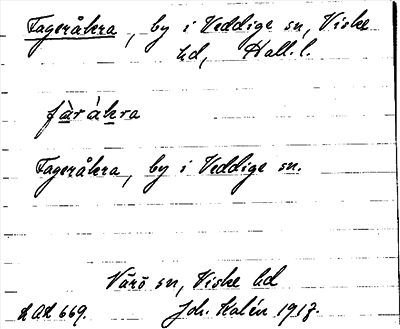 Fageråkra, by i Veddige sn, Viske
hd, Hall. l.
fàràkra
Fageråkra, by i Veddige sn.
Värö sn, Viske hd
LAL 669. Joh. Kalén 1917.